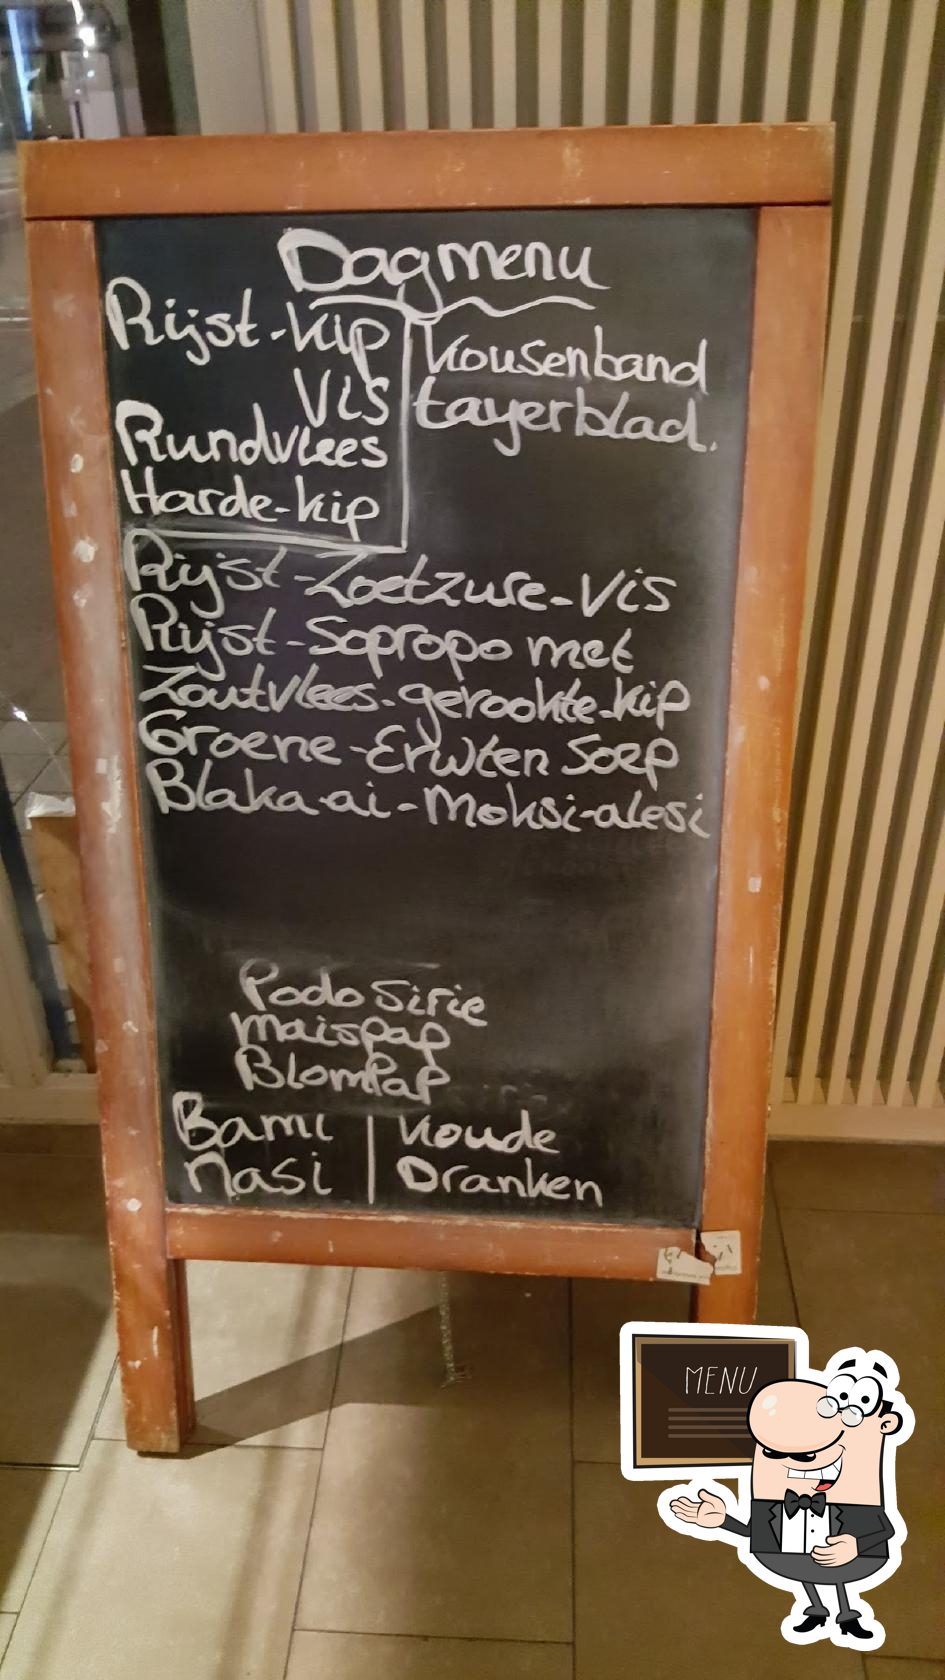 Dagmenu
Rijst-kip
Vis
Rundvlees
Harde-kip
kousenband
tayerblad.
Rijst-Zoetzure-Vis
Rijst-Sopropo met
Zoutvlees-gerookte-kip
Groene-Erwten Soep
Blaka-ai-Moksi-alesi
Podo Sirie
Maispap
BlomPap
Bami
Nasi
Koude
Dranken
MENU